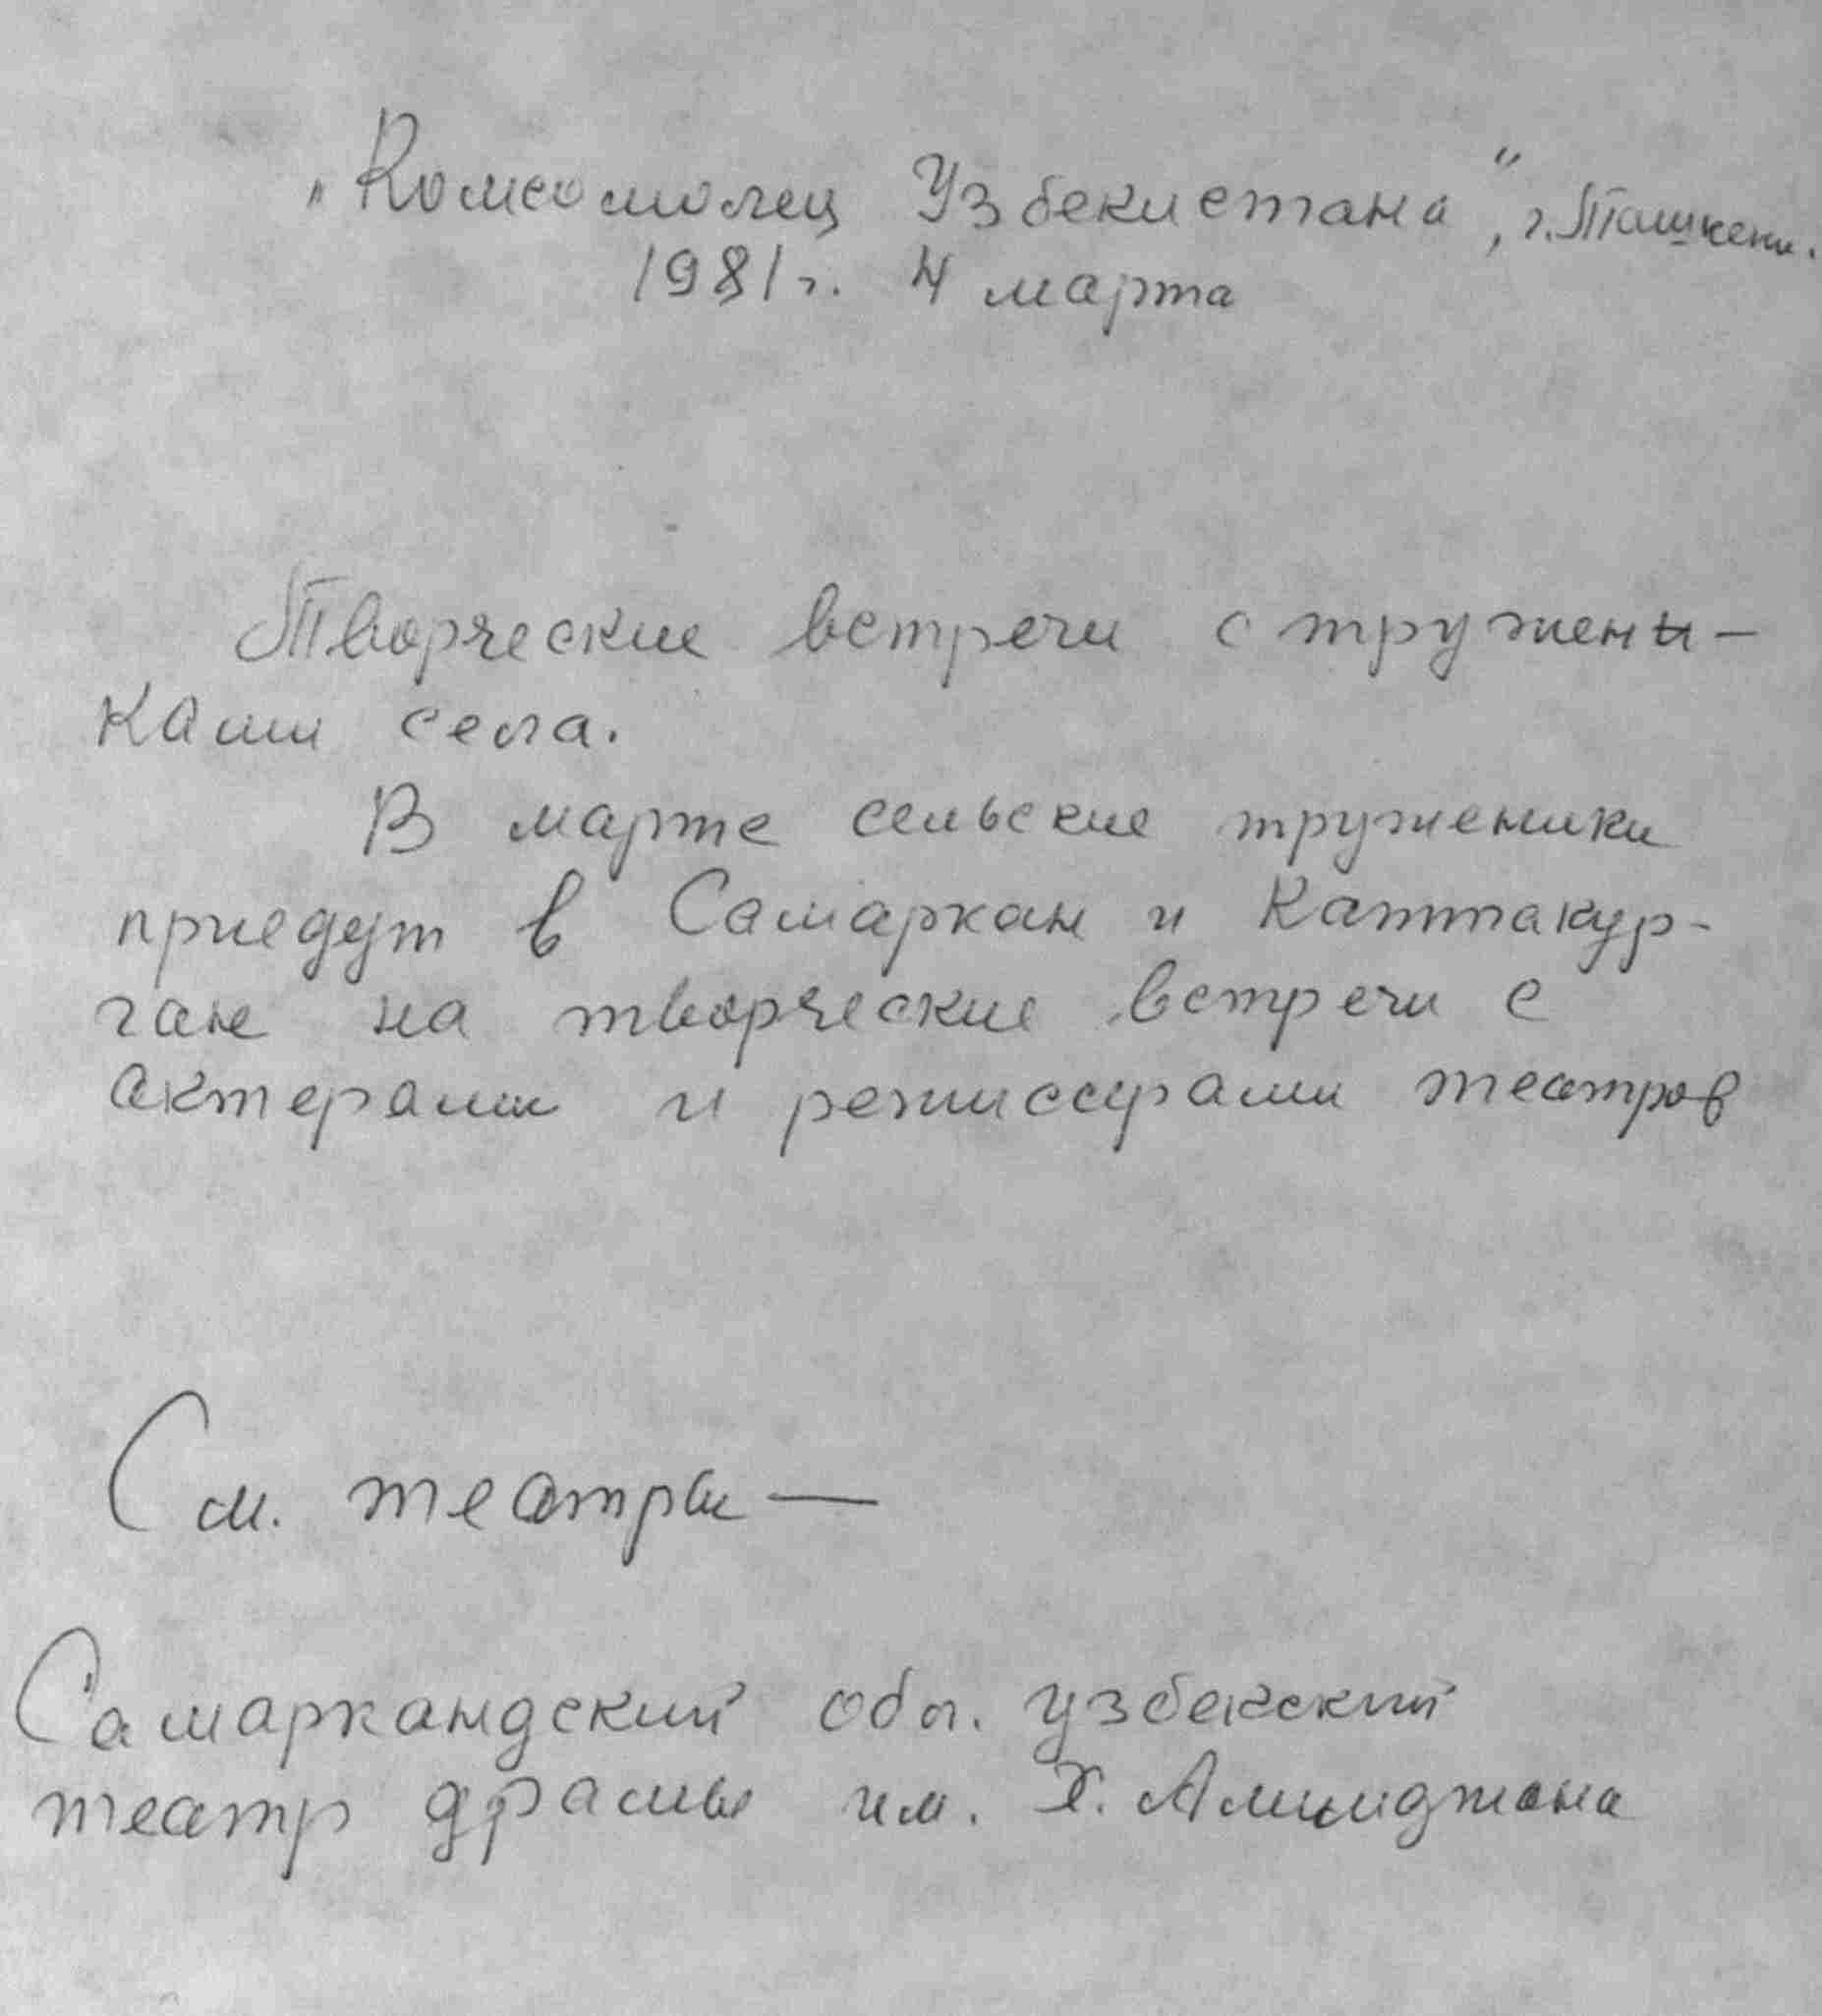 "Комсомолец Узбекистана", г. Ташкент.
1981 г. 4 марта
Творческие встречи с тружени-
ками села.
В марте сельские труженики
приедут в Самаркан и Каттакур-
ган на творческие встречи с
актерами и режиссурами театров
См. театры —
Самаркандский обл. узбекский
театр драмы им. Х. Алимджана